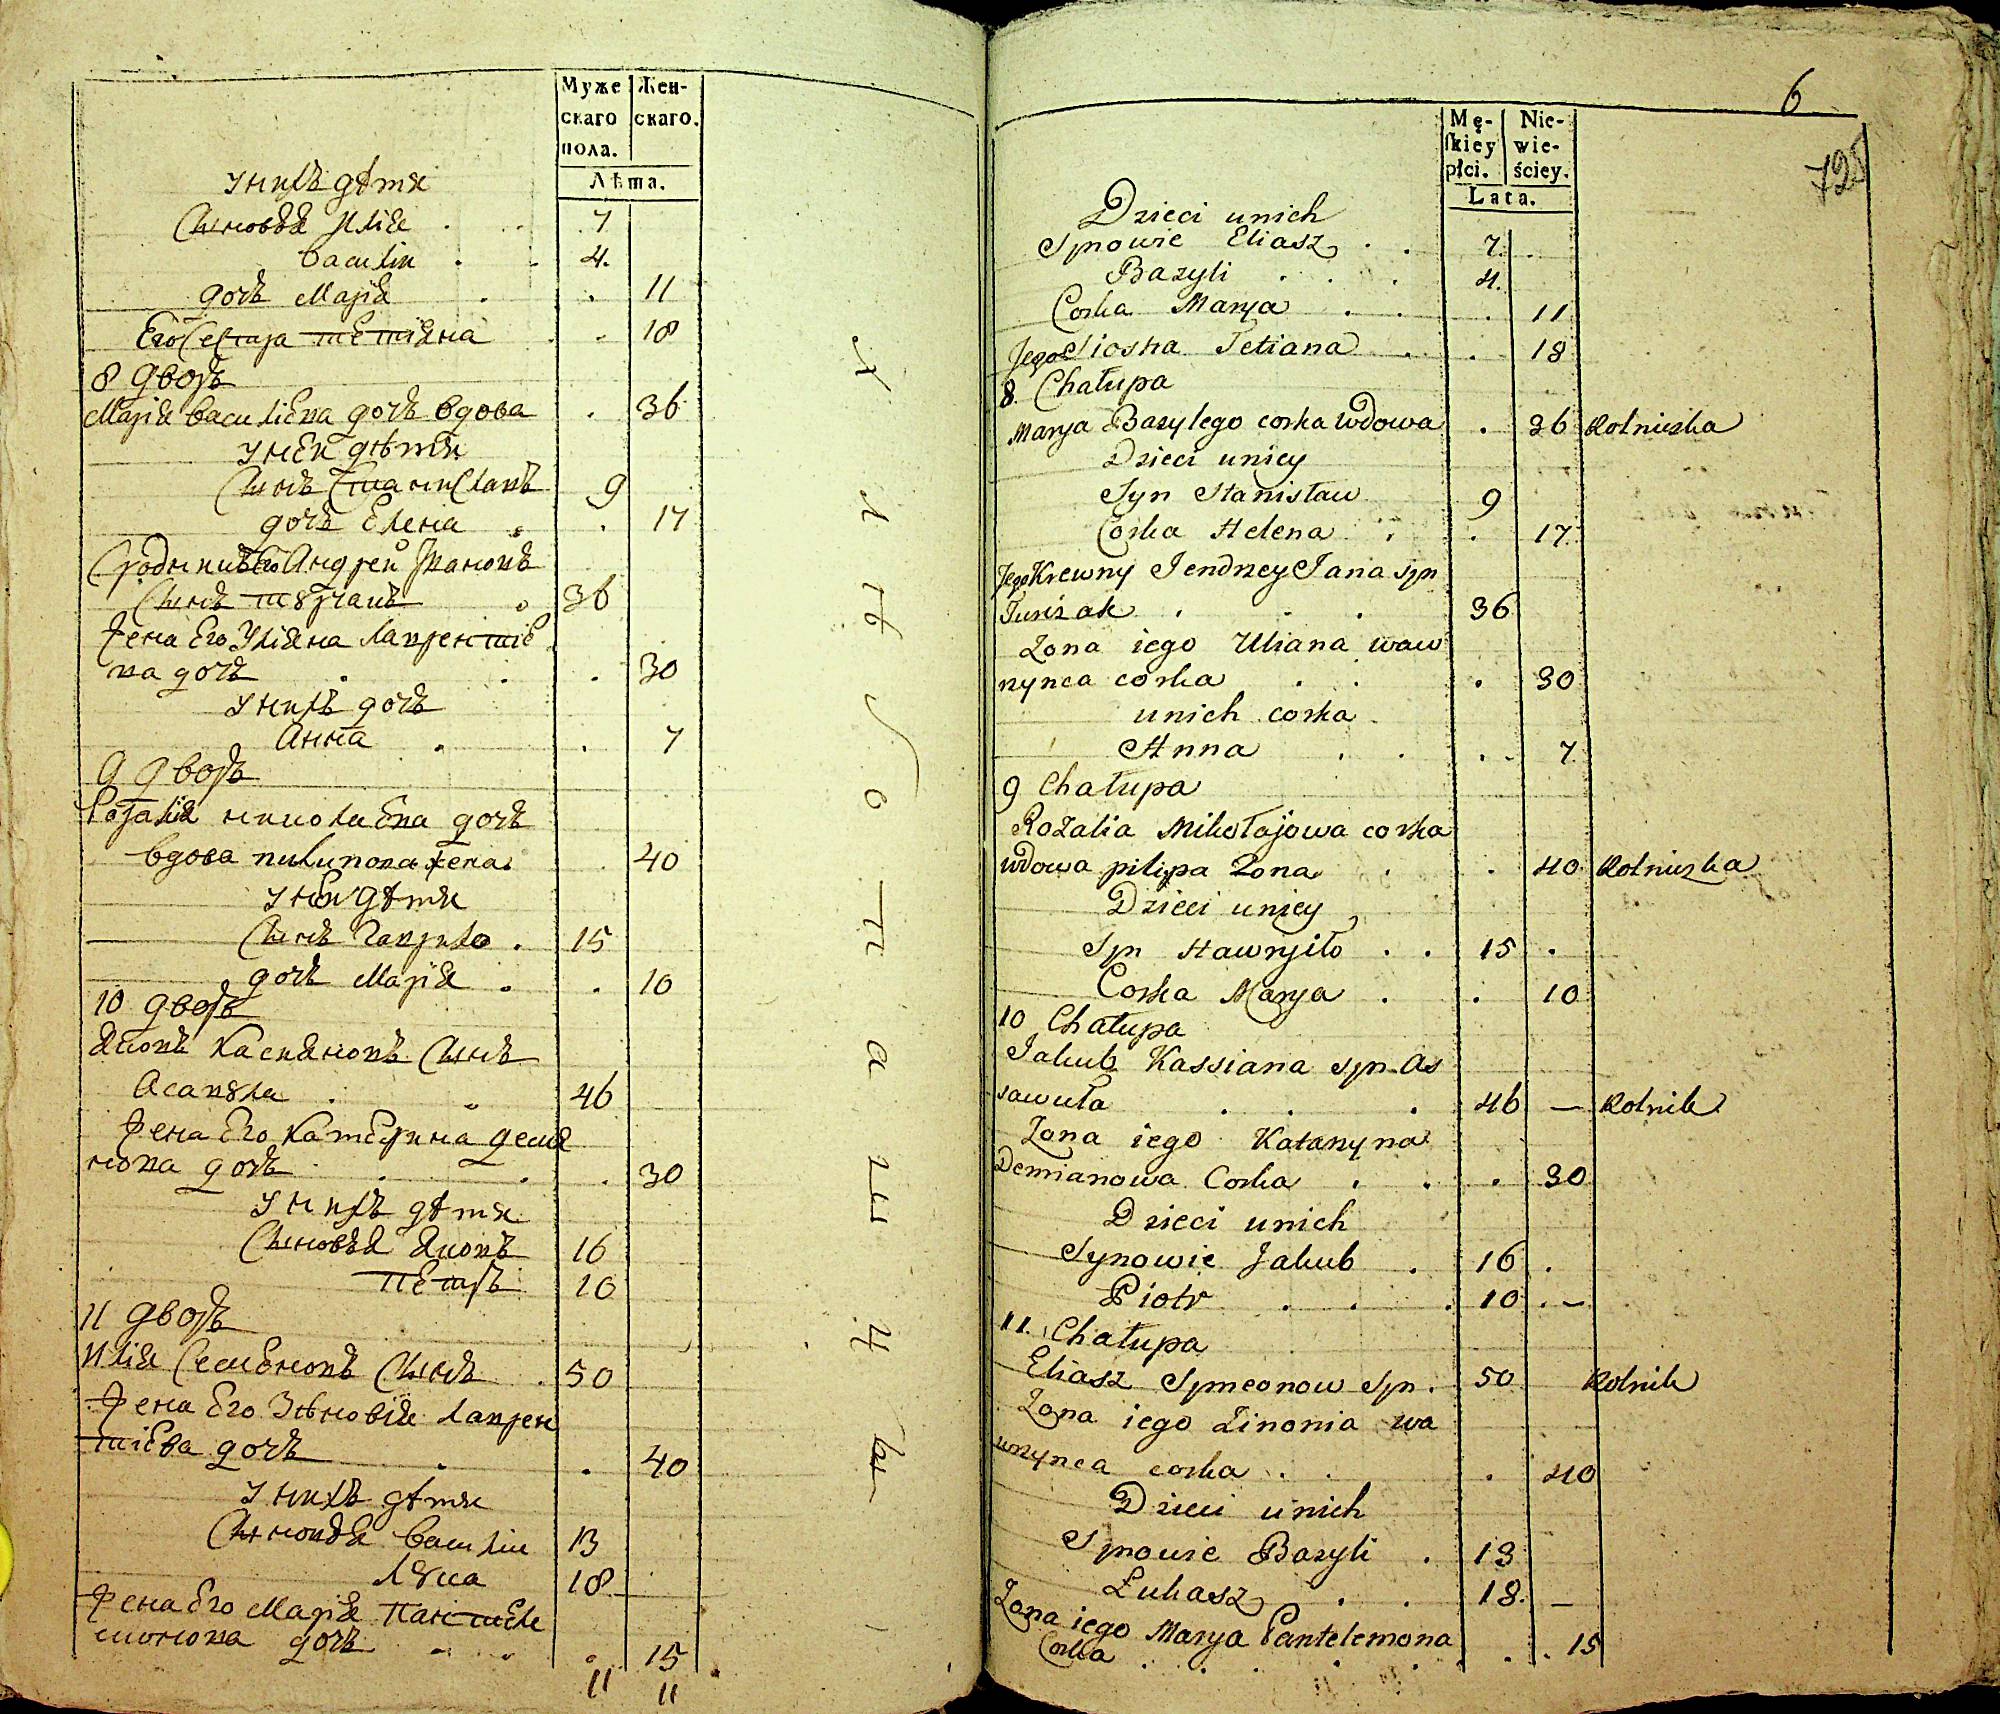 Муже Жен-
скаго скаго.
пола.
Лѣта.
У нихъ дѣти
Сыновья Илія . . 7
Василій . . 4.
дочь Марія . . 11
Его Сестра Тетіяна . . 18
8 дворъ
Марія Василіева дочь вдова . 36
У ней дѣти
Сынъ Станиславъ 9
дочь Елена . . 17
Сродникъ Его Андрей Ивановъ
Сынъ Турчакъ . 36
Жена Его Уліяна Лаврентіе
ва дочь . . . 30
У нихъ дочь
Анна . . 7
9 дворъ
Розалія николаева дочь
вдова пилипова жена . 40
У ней дѣти
Сынъ Гаврило . 15
дочь Марія . . 10
10 дворъ
Яковъ Касияновъ Сынъ
Асавула . . 46
Жена Его Катерина демя
нова дочь . . . 30
У нихъ дѣти
Сыновья Яковъ 16
Петръ 10
11 дворъ
Илія Семеновъ Сынъ . 50
Жена Его Зѣновія Лаврен
тіева дочь . . 40
У нихъ дѣти
Сыновья Василій 13
Лука 18
Жена Его Марія Пантеле
монова дочь . . . 15
11 11
х
л
ѣ
б
о
п
а
ш
ц
ы
6
728
Mę- Nie-
ſkiey wie-
płci. ściey.
Lata.
Dzieci unich
Synowie Eliasz . . 7. .
Bazyli . . . 4.
Corka Marya . . . 11
Jego Siostra Tetiana . . 18
8. Chałupa
Marya Bazylego corka wdowa . 36 Rolniczka
Dzieci unicy
Syn Stanisław 9
Corka Helena . . 17.
Jego Krewny Jendrzey Jana syn
Turczak . . . 36
Zona iego Uliana waw
rzynca corka . . . 30
unich corka
Anna . . . 7.
9 Chałupa
Rozalia Mikołajowa corka
wdowa pilipa Zona . . 40. Rolniczka
Dzieci unicy
Syn Hawryiło . . 15 .
Corka Marya . . 10
10 Chałupa
Jakub Kassiana syn As
sawuła . . . 46 — Rolnik.
Zona iego Katarzyna
Demianowa Corka . . . 30
Dzieci unich
Synowie Jakub . 16 .
Piotr . . . 10 . —
11. Chałupa
Eliasz Symeonow Syn . 50 Rolnik
Zona iego Zinonia wa
wrzynca corka . . . 40
Dzieci unich
Synowie Bazyli . 13
Łukasz . . 18. —
Zona iego Marya Pantelemona
Corka . . . . . . . 15